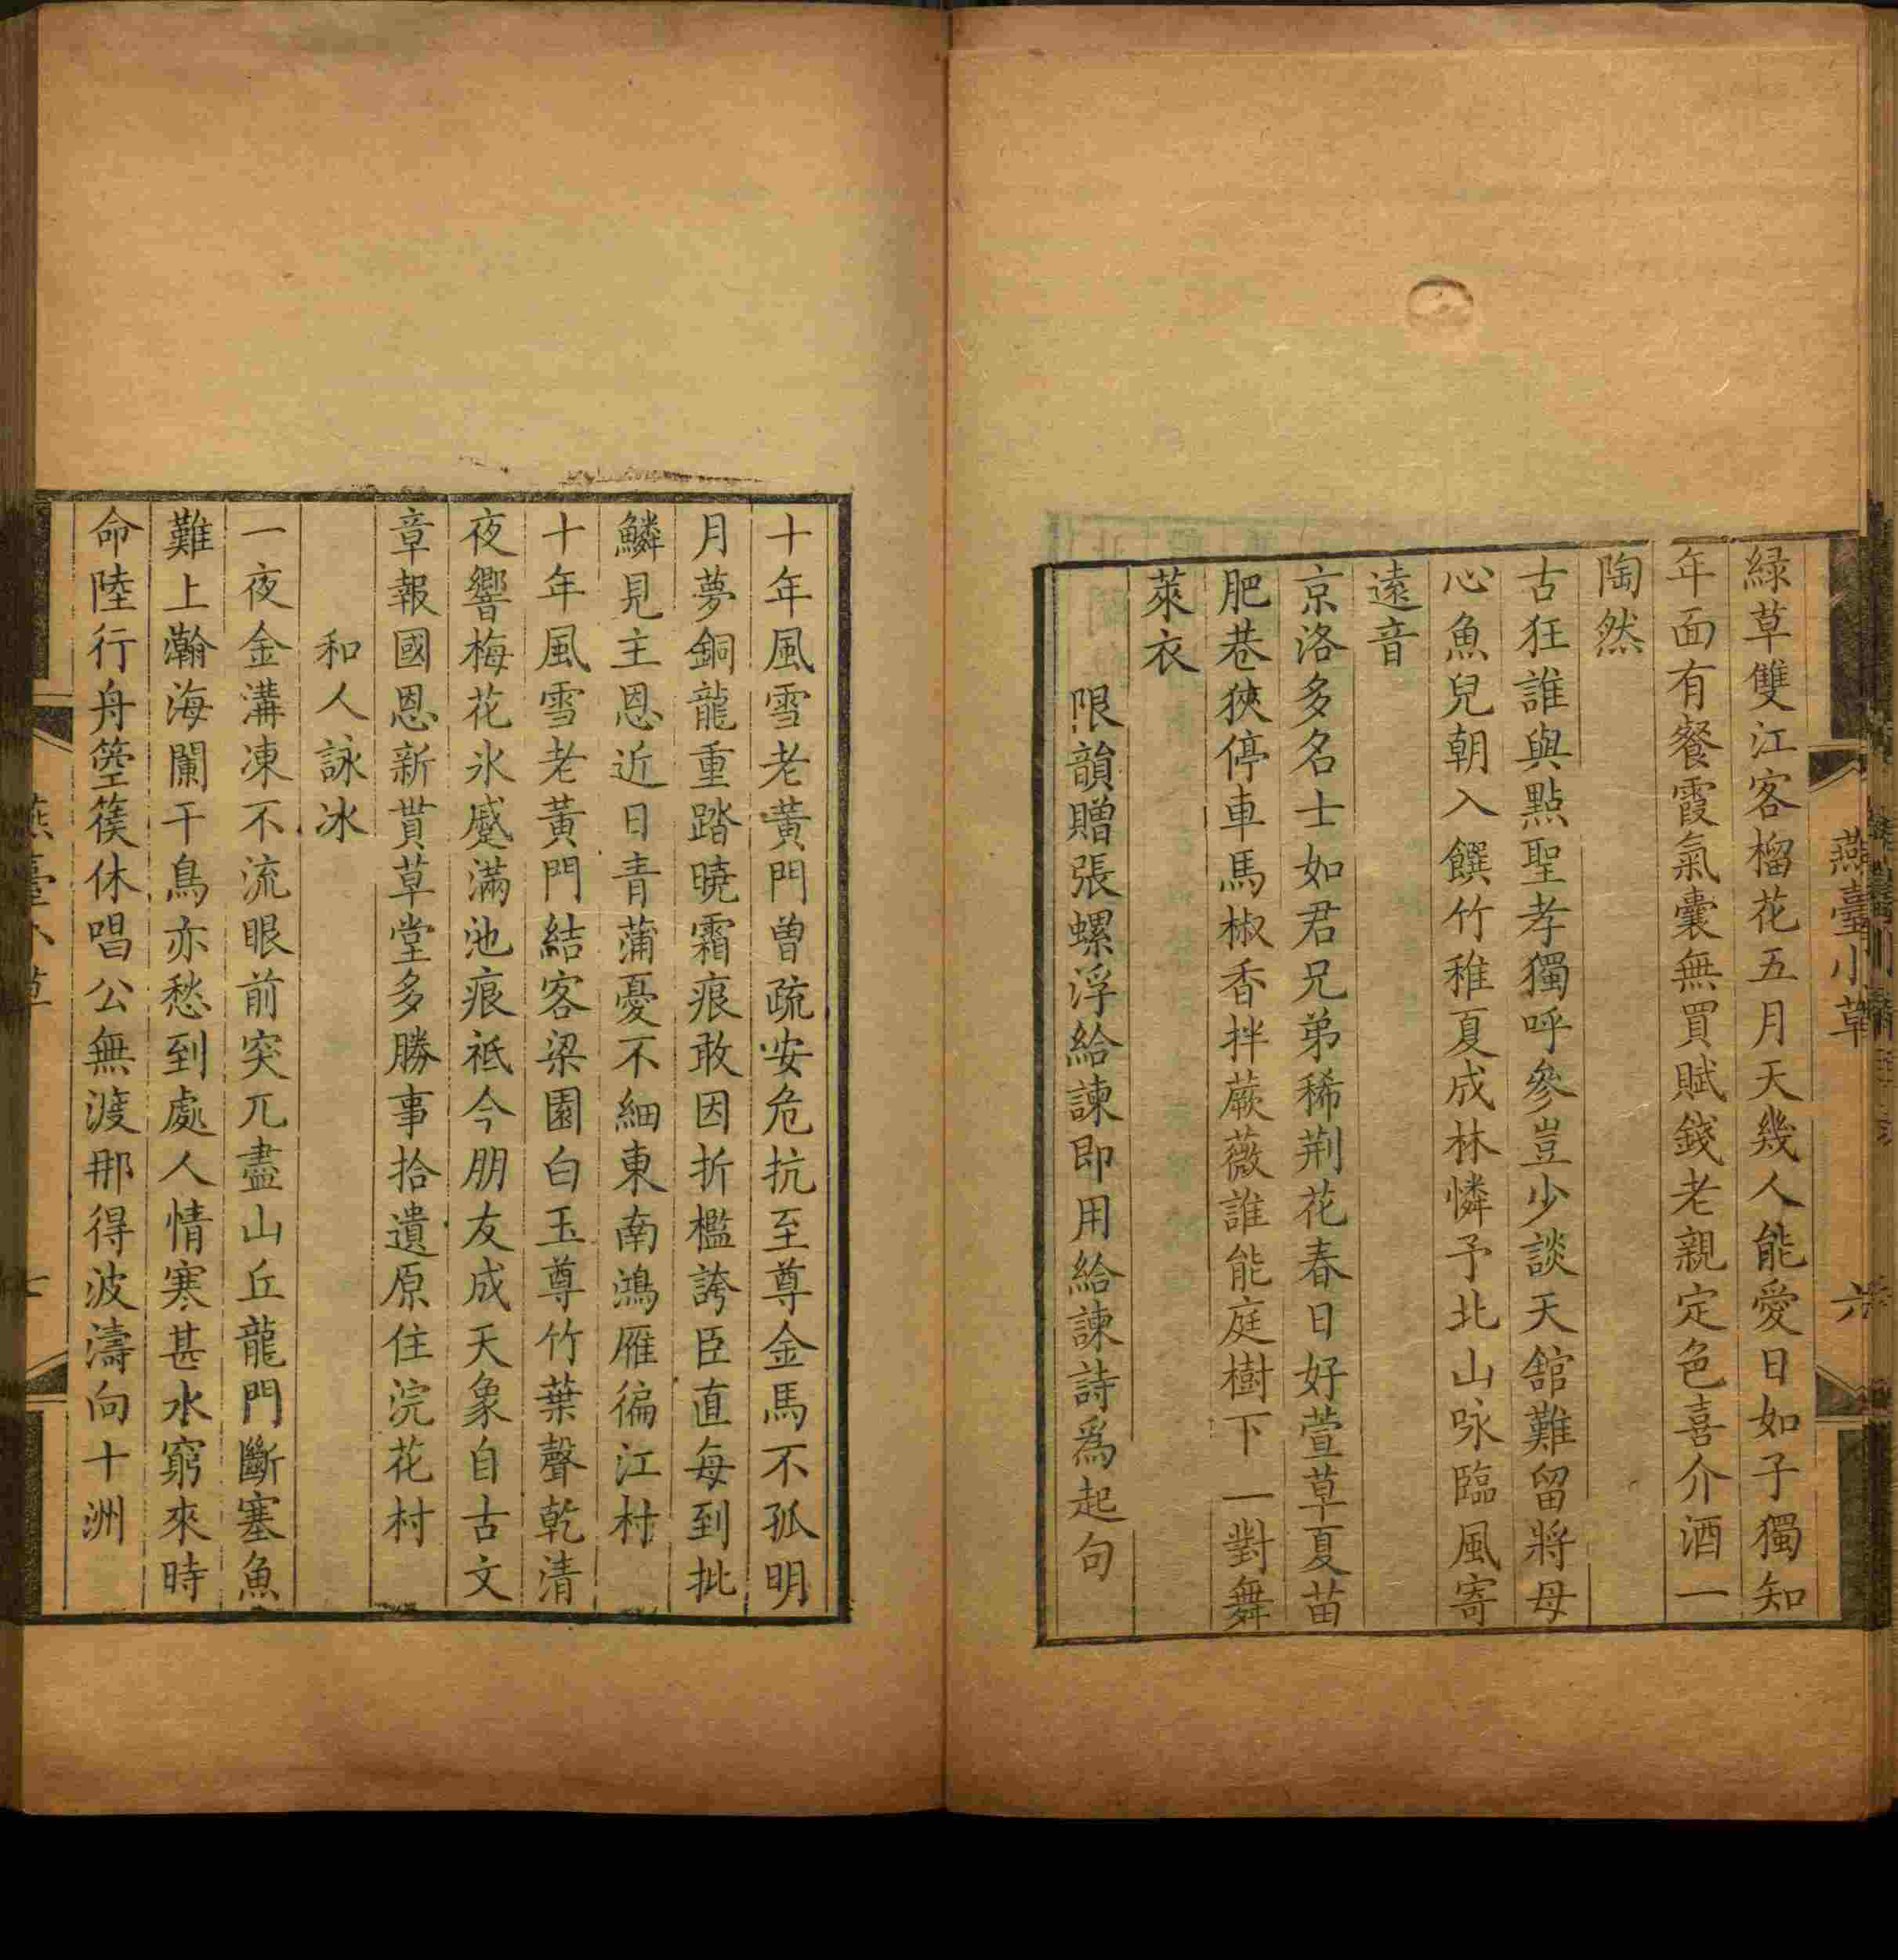 燕臺小草
六
綠草雙江客榴花五月天幾人能愛日如子獨知
年面有餐霞氣囊無買賦錢老親定色喜介酒一
陶然
古狂誰與點聖孝獨呼參豈少談天舘難留將母
心魚兒朝入饌竹稚夏成林憐予北山咏臨風寄
遠音
京洛多名士如君兄弟稀荆花春日好萱草夏苗
肥巷狹停車馬椒香拌蕨薇誰能庭樹下一對舞
萊衣
限韻贈張螺浮給諫即用給諫詩爲起句
十年風雪老黃門曾疏安危抗至尊金馬不孤明
月夢銅龍重踏曉霜痕敢因折檻誇臣直每到批
鱗見主恩近日青蒲憂不細東南鴻雁徧江村
十年風雪老黃門結客梁園白玉尊竹葉聲乾清
夜響梅花氷蹙滿池痕祗今朋友成天象自古文
章報國恩新貰草堂多勝事拾遺原住浣花村
和人詠冰
一夜金溝凍不流眼前突兀盡山丘龍門斷塞魚
難上瀚海闌干鳥亦愁到處人情寒甚水窮來時
命陸行舟箜篌休唱公無渡那得波濤向十洲
燕臺小草
七